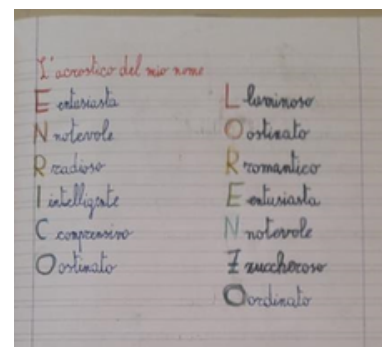 L'acrostico del mio nome
E entusiasta
N notevole
R radioso
I intelligente
C comprensivo
O ostinato
L luminoso
O ostinato
R romantico
E entusiasta
N notevole
Z zuccheroso
O ordinato